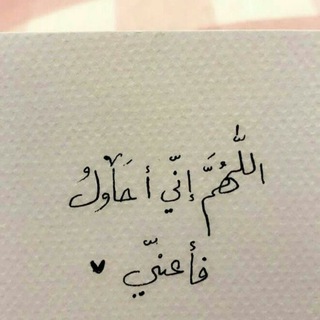 اللَّهُمَّ إنّي أحَاولُ
فأعنّي ♥